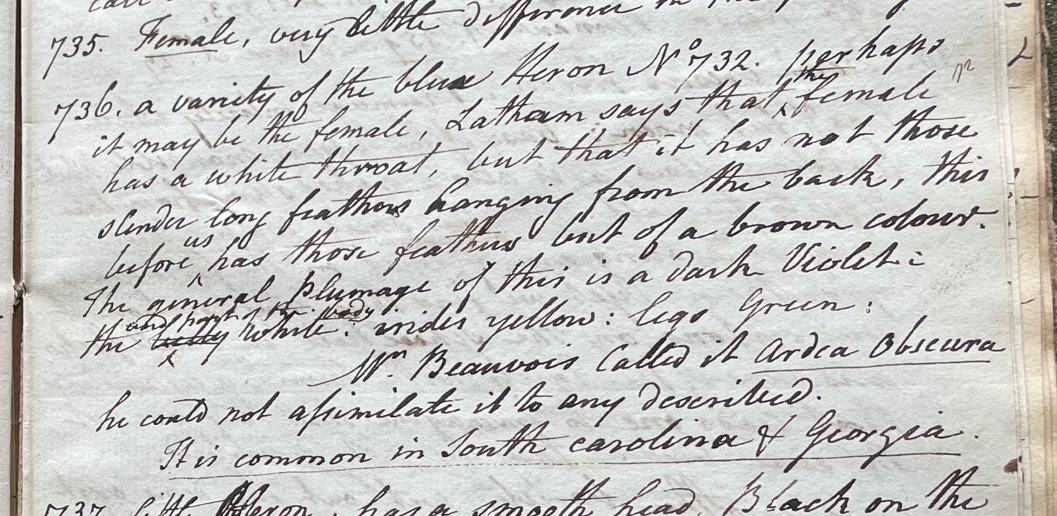 735. Female, very little difference in the
736. a variety of the blue Heron No 732. perhaps
it may be the female, Latham says that the female
has a white throat, but that it has not those
slender long feathers hanging from the back, this
before us has those feathers but of a brown colour.
The general plumage of this is a dark Violet:
the belly and front of the body white: irides yellow: legs Green:
Mr. Beauvois Called it Ardea Obscura
he could not assimilate it to any described.
It is common in South carolina & Georgia.
737. little Heron, has a smooth head, Black on the